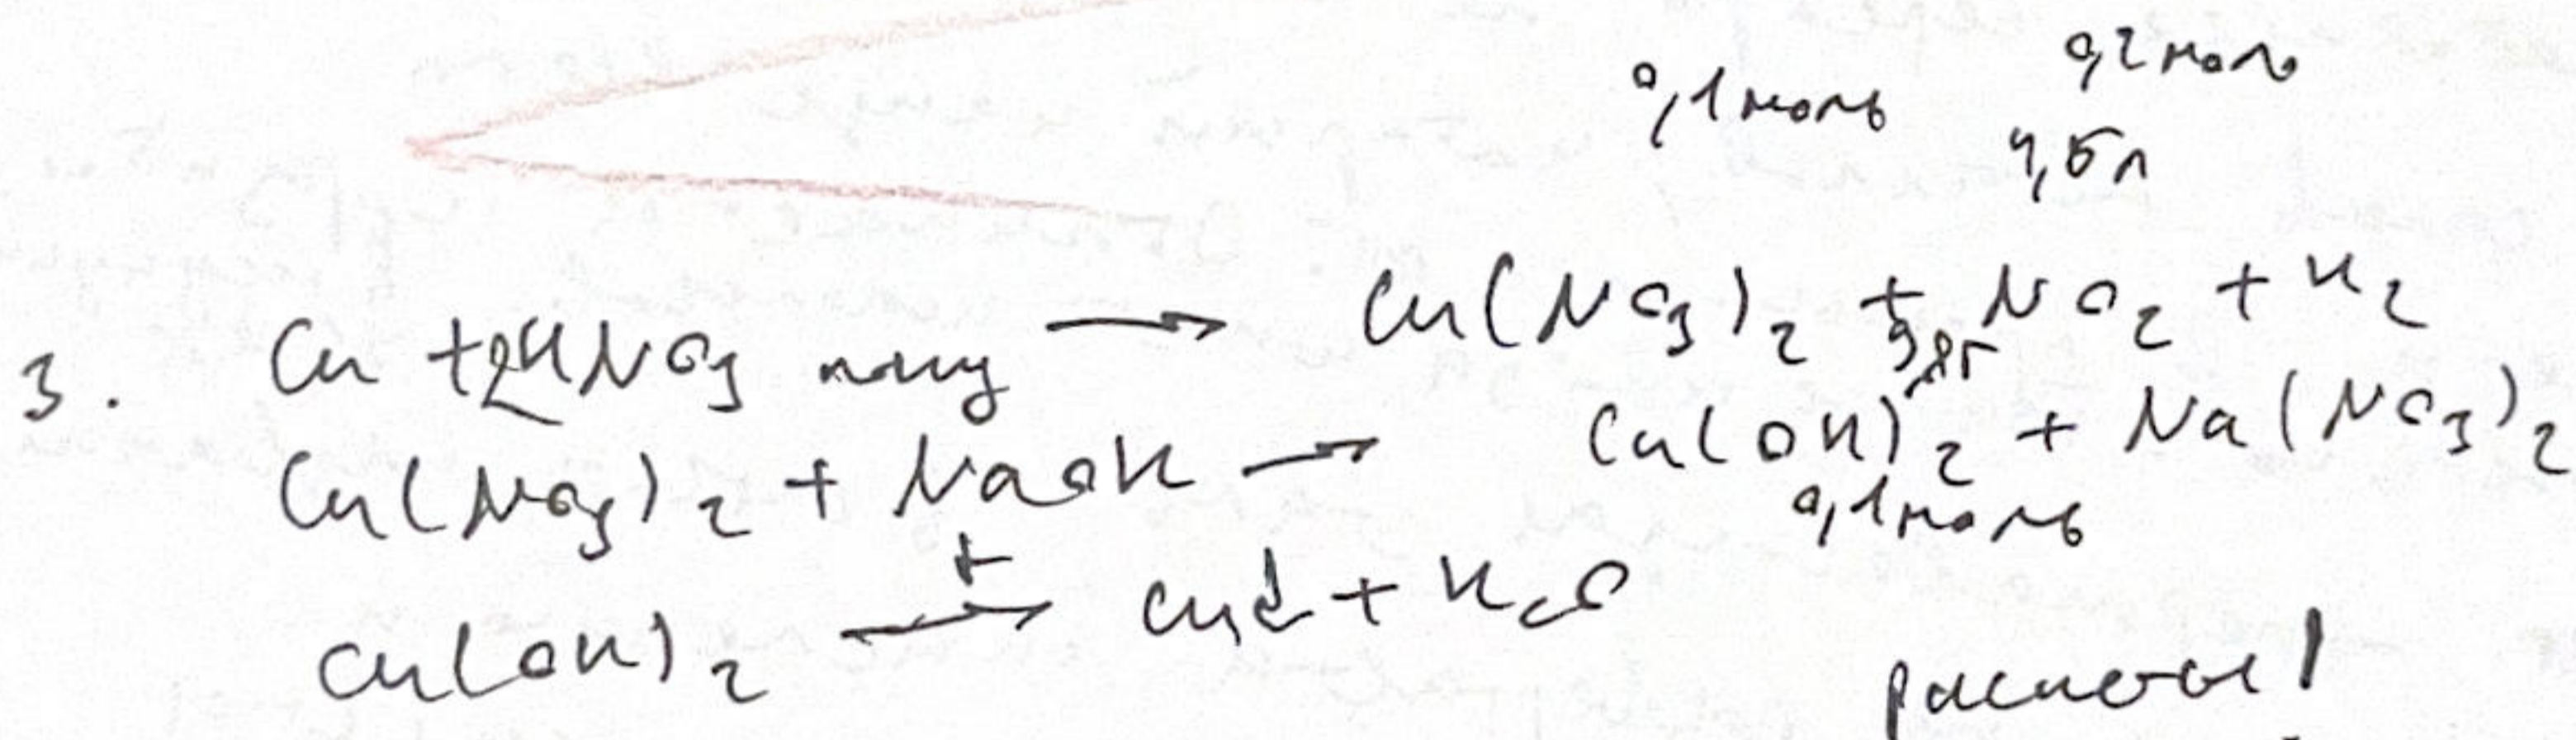 0,1 моль 0,2 моль
4,5л
3. Cu + 2HNO3 конц → Cu(NO3)2 + NO2 + H2
9,8г
Cu(NO3)2 + NaOH → Cu(OH)2 + Na(NO3)2
0,1 моль
Cu(OH)2 →t + H2O
расчеты!